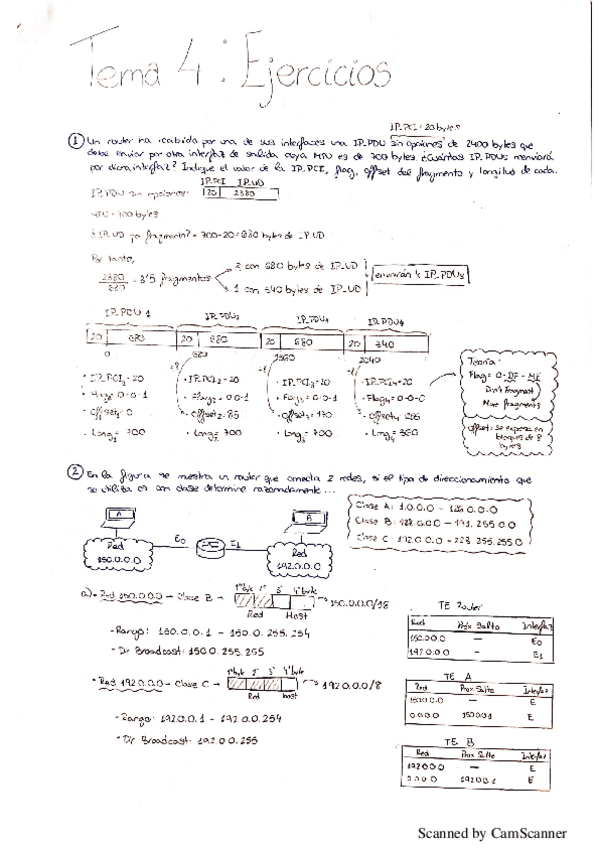 Tema 4: Ejercicios
IP_PCI: 20 bytes
① Un router ha recibido por una de sus interfaces una IP_PDU sin opciones de 2400 bytes que
debe enviar por otra interfaz de salida cuya MTU es de 700 bytes. ¿Cuántas IP_PDUs enviará
por dicha interfaz? Indique el valor de la IP_PCI, flag, offset del fragmento y longitud de cada.
IP_PCI IP_UD
IP_PDU sin opciones: 20 2380
MTU = 700 bytes
IP_UD por fragmento? = 700-20 = 680 bytes de IP_UD
Por tanto,
2380
680
= 3'5 fragmentos
3 con 680 bytes de IP_UD
1 con 340 bytes de IP_UD
enviarán 4 IP_PDUs
IP_PDU 1 IP_PDU2 IP_PDU4
20 680 20 680 20 680 20 340
0 680 1360 2040
· IP_PCI2=20 · IP_PCI3=20 · IP_PCI4=20
· Flag2= 0-0-1 · Flag3= 0-0-1 · Flag4= 0-0-0
· Offset1= 0 · Offset2= 85 · Offset3= 170 · Offset4= 255
· Long1= 700 · Long2= 700 · Long3= 700 · Long4= 360
Teoría:
Flag = 0-DF-MF
Don't Fragment
More fragments
Offset: se expresa en
bloques de 8
bytes
② En la figura se muestra un router que conecta 2 redes, si el tipo de direccionamiento que
se utiliza es con clase determine razonadamente...
Clase A: 1.0.0.0 - 126.0.0.0
Clase B: 128.0.0.0 - 191.255.0.0
Clase C: 192.0.0.0 - 223.255.255.0
A
B
Red
150.0.0.0
E0
E1
Red
192.0.0.0
a) • Red 150.0.0.0 → Clase B → 150.0.0.0/16
Red Host
- Rango: 150.0.0.1 - 150.0.255.254
- Dir Broadcast: 150.0.255.255
• Red 192.0.0.0 - Clase C →
1º byte 2º 3º 4º byte
Red host
192.0.0.0/8
- Rango: 192.0.0.1 - 192.0.0.254
- Dir Broadcast: 192.0.0.255
TE Router
Red Prox Salto Interfaz
150.0.0.0 — E0
192.0.0.0 — E1
TE A
Red Prox Salto Interfaz
150.0.0.0 — E
0.0.0.0 150.0.0.1 E
TE B
Red Prox Salto Interfaz
192.0.0.0 — E
0.0.0.0 192.0.0.1 E
Scanned by CamScanner